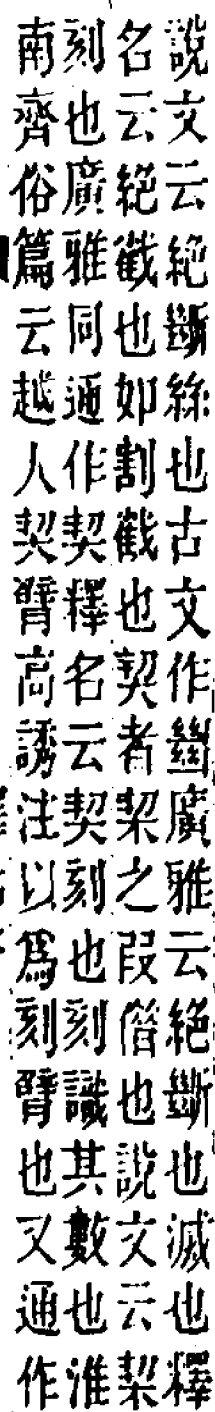 說文云絶斷絲也古文作𢇍廣雅云絶斷也滅也釋
名云絶截也如割截也契者栔之叚借也說文云栔
刻也廣雅同通作契釋名云契刻也刻識其數也淮
南齊俗篇云越人契臂高誘注以爲刻臂也又通作